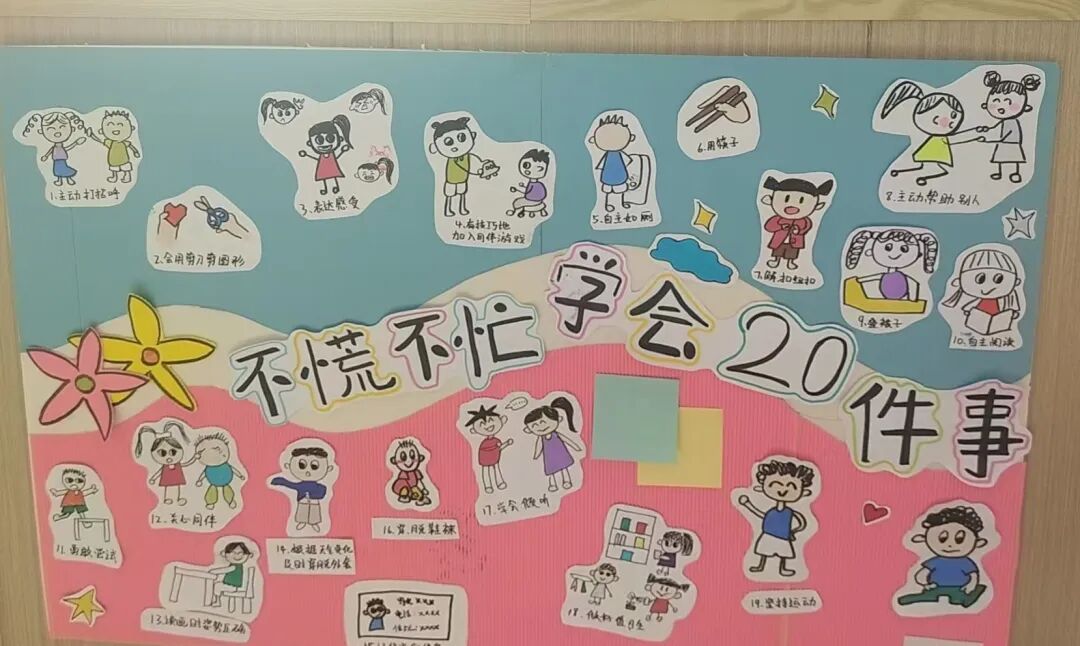 不慌不忙学会20件事
1.主动打招呼
2.会用剪刀剪图形
3.表达感受
4.有技巧地
加入同伴游戏
5.自主如厕
6.用筷子
7.解、扣纽扣
8.主动帮助别人
9.叠被子
10.自主阅读
11.勇敢尝试
12.关心同伴
13.读画时姿势正确
14.根据天气变化
及时穿脱外套
16.穿、脱鞋袜
17.学会倾听
18.做好值日生
19.坚持运动